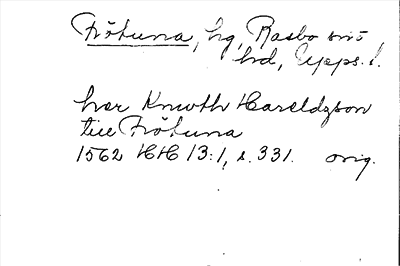 Frötuna, hg, Rasbo sn o
hd, Upps. l.
her Knwth Haraldzson
till Frötuna
1562 HH 13:1, s. 331. orig.